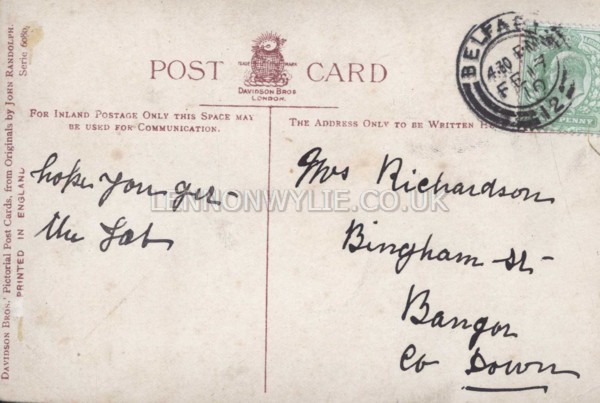 POST CARD
TRADE MARK
DAVIDSON BROS
LONDON.
FOR INLAND POSTAGE ONLY THIS SPACE MAY
BE USED FOR COMMUNICATION.
THE ADDRESS ONLY TO BE WRITTEN
hopes you get
the Job
Mrs Richardson
Bingham St
Bangor
Co Down
BELFAST
4.30 PM
FE 7
12
PENNY
LENNONWYLIE.CO.UK
Davidson Bros.' Pictorial Post Cards, from Originals by John Randolph.
Serie 6089.
PRINTED IN ENGLAND